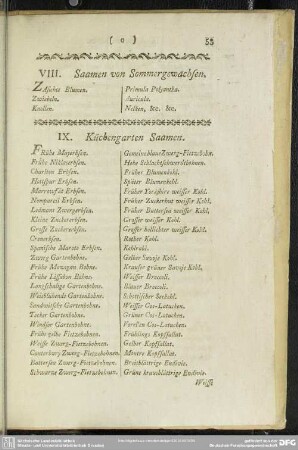 ( 0 ) 55
VIII. Saamen von Sommergewächsen.
Zaseln Blumen.
Zwiebeln.
Knollen.
Primula Polyantha.
Auricula.
Nelken, &c. &c.
IX. Küchengarten Saamen.
Frühe Mayerbsen.
Frühe Nützerbsen.
Charlton Erbsen.
Hotspur Erbsen.
Marrowfatt Erbsen.
Nonpareil Erbsen.
Ledmans Zwergerbsen.
Kleine Zuckererbsen.
Grosse Zuckererbsen.
Cronerbsen.
Spanische Moratto Erbsen.
Zwerg Gartenbohne.
Frühe Mazagan Bohne.
Frühe Lissaboner Bohne.
Langschotige Gartenbohne.
Weissblühende Gartenbohne.
Sandwichsche Gartenbohne.
Toker Gartenbohne.
Windsor Gartenbohne.
Frühe gelbe Fietzebohnen.
Weisse Zwerg-Fietzebohnen.
Canterbury Zwerg-Fietzebohnen.
Battersea Zwerg-Fietzebohnen.
Schwarze Zwerg-Fietzebohnen.
Hohe Schlachtschwerdtbohnen.
Früher Blumenkohl.
Später Blumenkohl.
Früher Yorkshire weisser Kohl.
Früher Zuckerhut weisser Kohl.
Früher Battersea weisser Kohl.
Grosser weisser Kohl.
Rother Kohl.
Kohlrabi.
Gelber Savoje Kohl.
Krauser grüner Savoje Kohl.
Weisser Brocoli.
Blauer Brocoli.
Schottischer Seekohl.
Weisser Cos-Latuken.
Grüner Cos-Latuken.
Forellen Cos-Latuken.
Frühlings Kopfsallat.
Gelber Kopfsallat.
Mineur Kopfsallat.
Breitblättrige Endivie.
Grüne krausblättrige Endivie.
Weisse